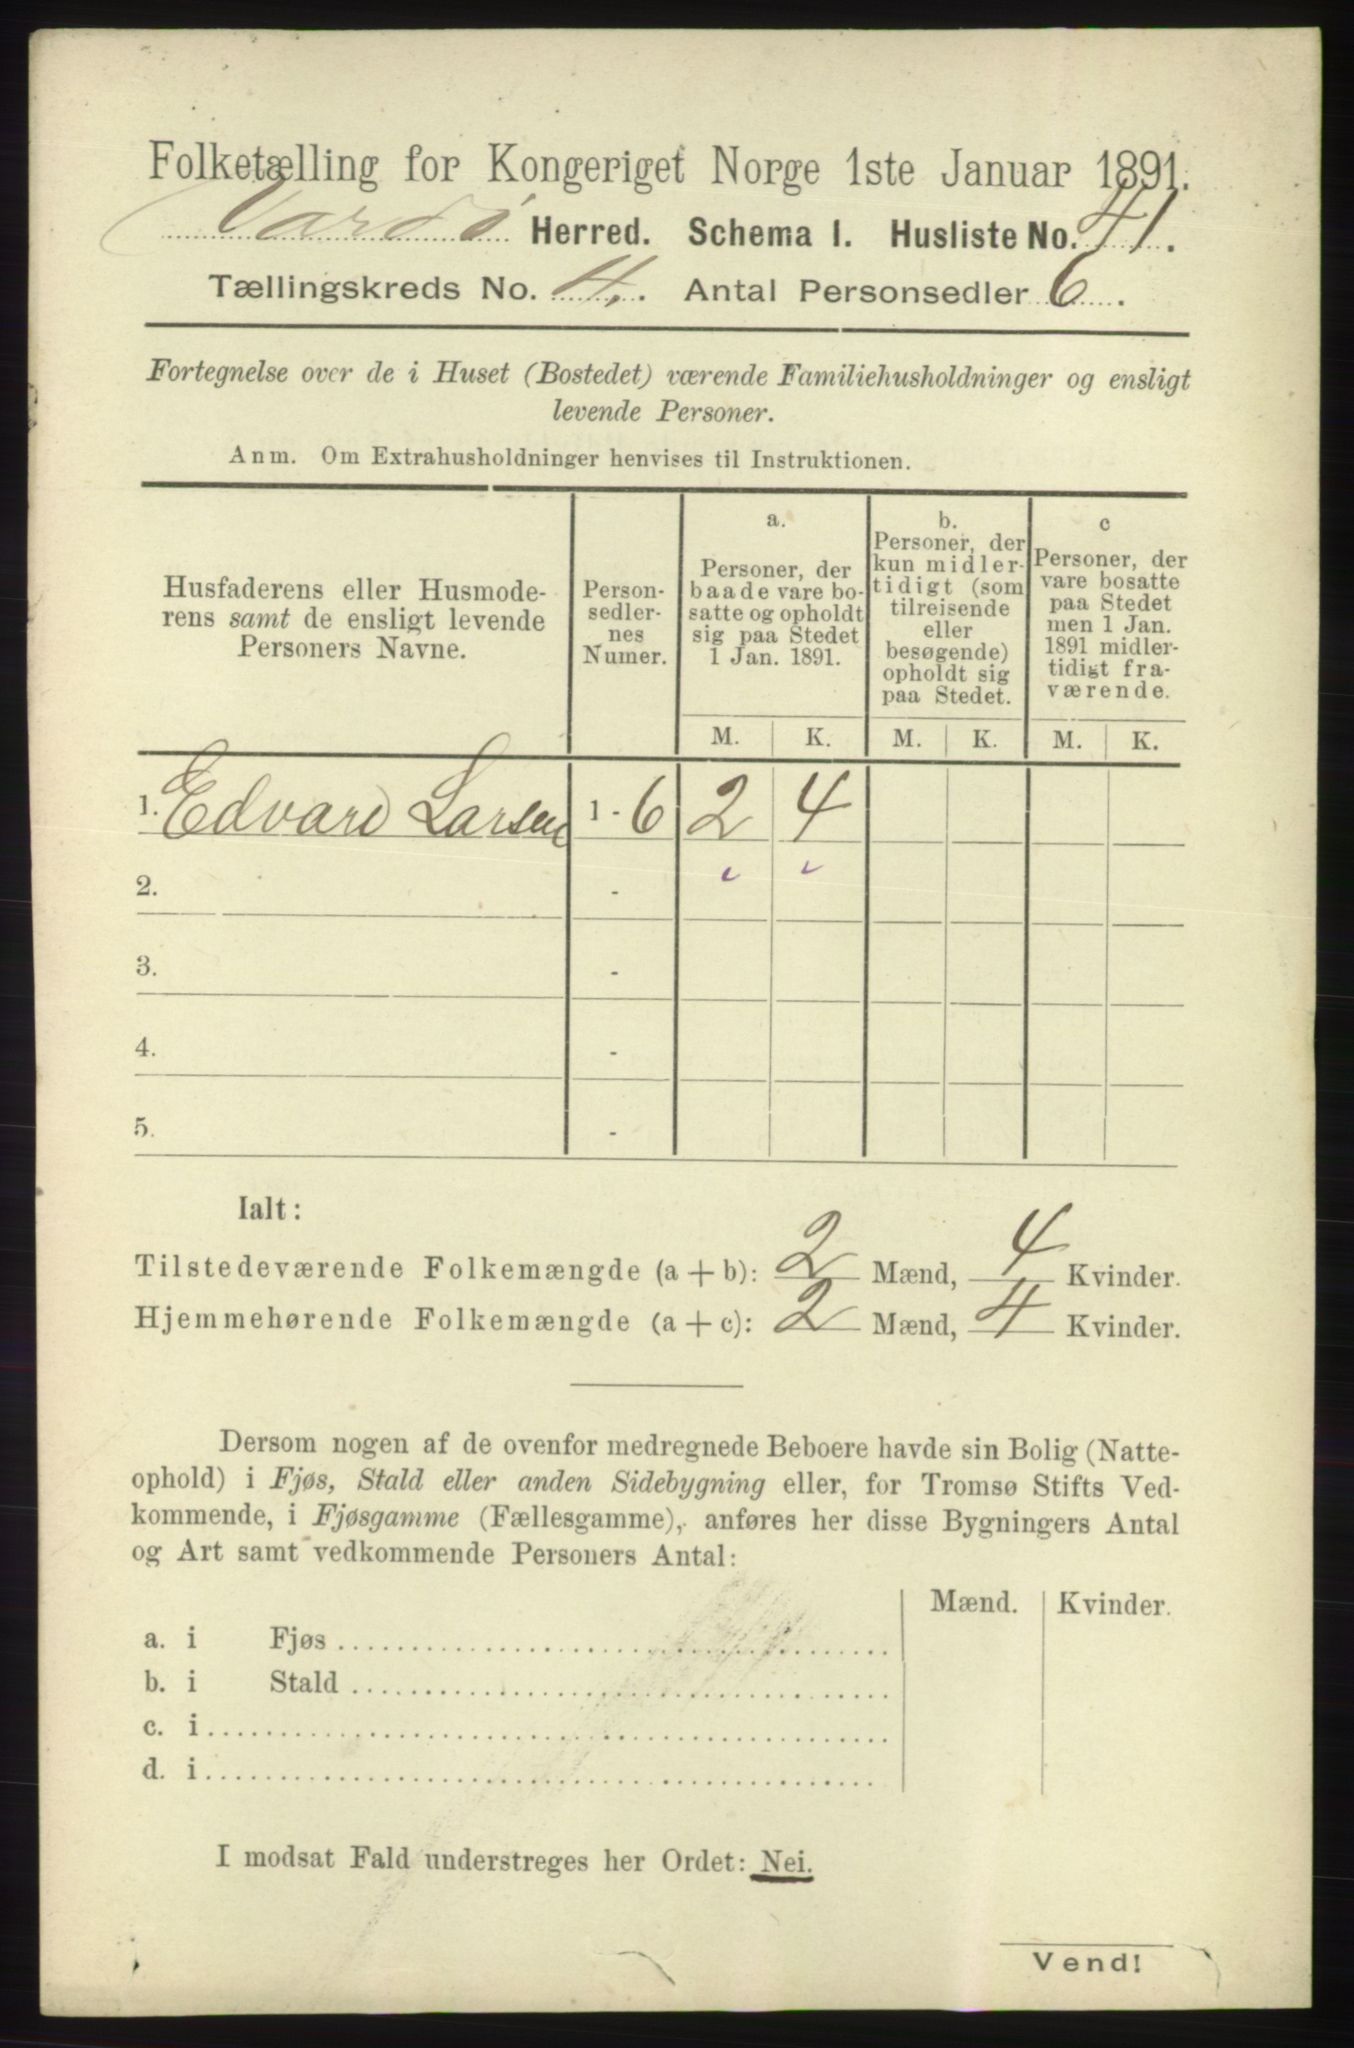 Folketælling for Kongeriget Norge 1ste Januar 1891.
Vardø Herred. Schema I. Husliste No. 41.
Tællingskreds No. 4. Antal Personsedler 6.
Fortegnelse over de i Huset (Bostedet) værende Familiehusholdninger og ensligt
levende Personer.
Anm. Om Extrahusholdninger henvises til Instruktionen.
Husfaderens eller Husmode-
rens samt de ensligt levende
Personers Navne.
Person-
sedler-
nes
Numer.
a.
Personer, der
baade vare bo-
satte og opholdt
sig paa Stedet
1 Jan. 1891.
b.
Personer, der
kun midler-
tidigt (som
tilreisende
eller
besøgende)
opholdt sig
paa Stedet.
c
Personer, der
vare bosatte
paa Stedet
men 1 Jan.
1891 midler-
tidigt fra-
værende.
M. K. M. K. M. K.
1. Edvard Larsen 1 - 6 2 4
2. -
3. -
4. -
5. -
Ialt:
Tilstedeværende Folkemængde (a + b): 2 Mænd, 4 Kvinder.
Hjemmehørende Folkemængde (a + c): 2 Mænd, 4 Kvinder.
Dersom nogen af de ovenfor medregnede Beboere havde sin Bolig (Natte-
ophold) i Fjøs, Stald eller anden Sidebygning eller, for Tromsø Stifts Ved-
kommende, i Fjøsgamme (Fællesgamme), anføres her disse Bygningers Antal
og Art samt vedkommende Personers Antal:
Mænd. Kvinder.
a. i Fjøs
b. i Stald
c. i
d. i
I modsat Fald understreges her Ordet: Nei.
Vend!